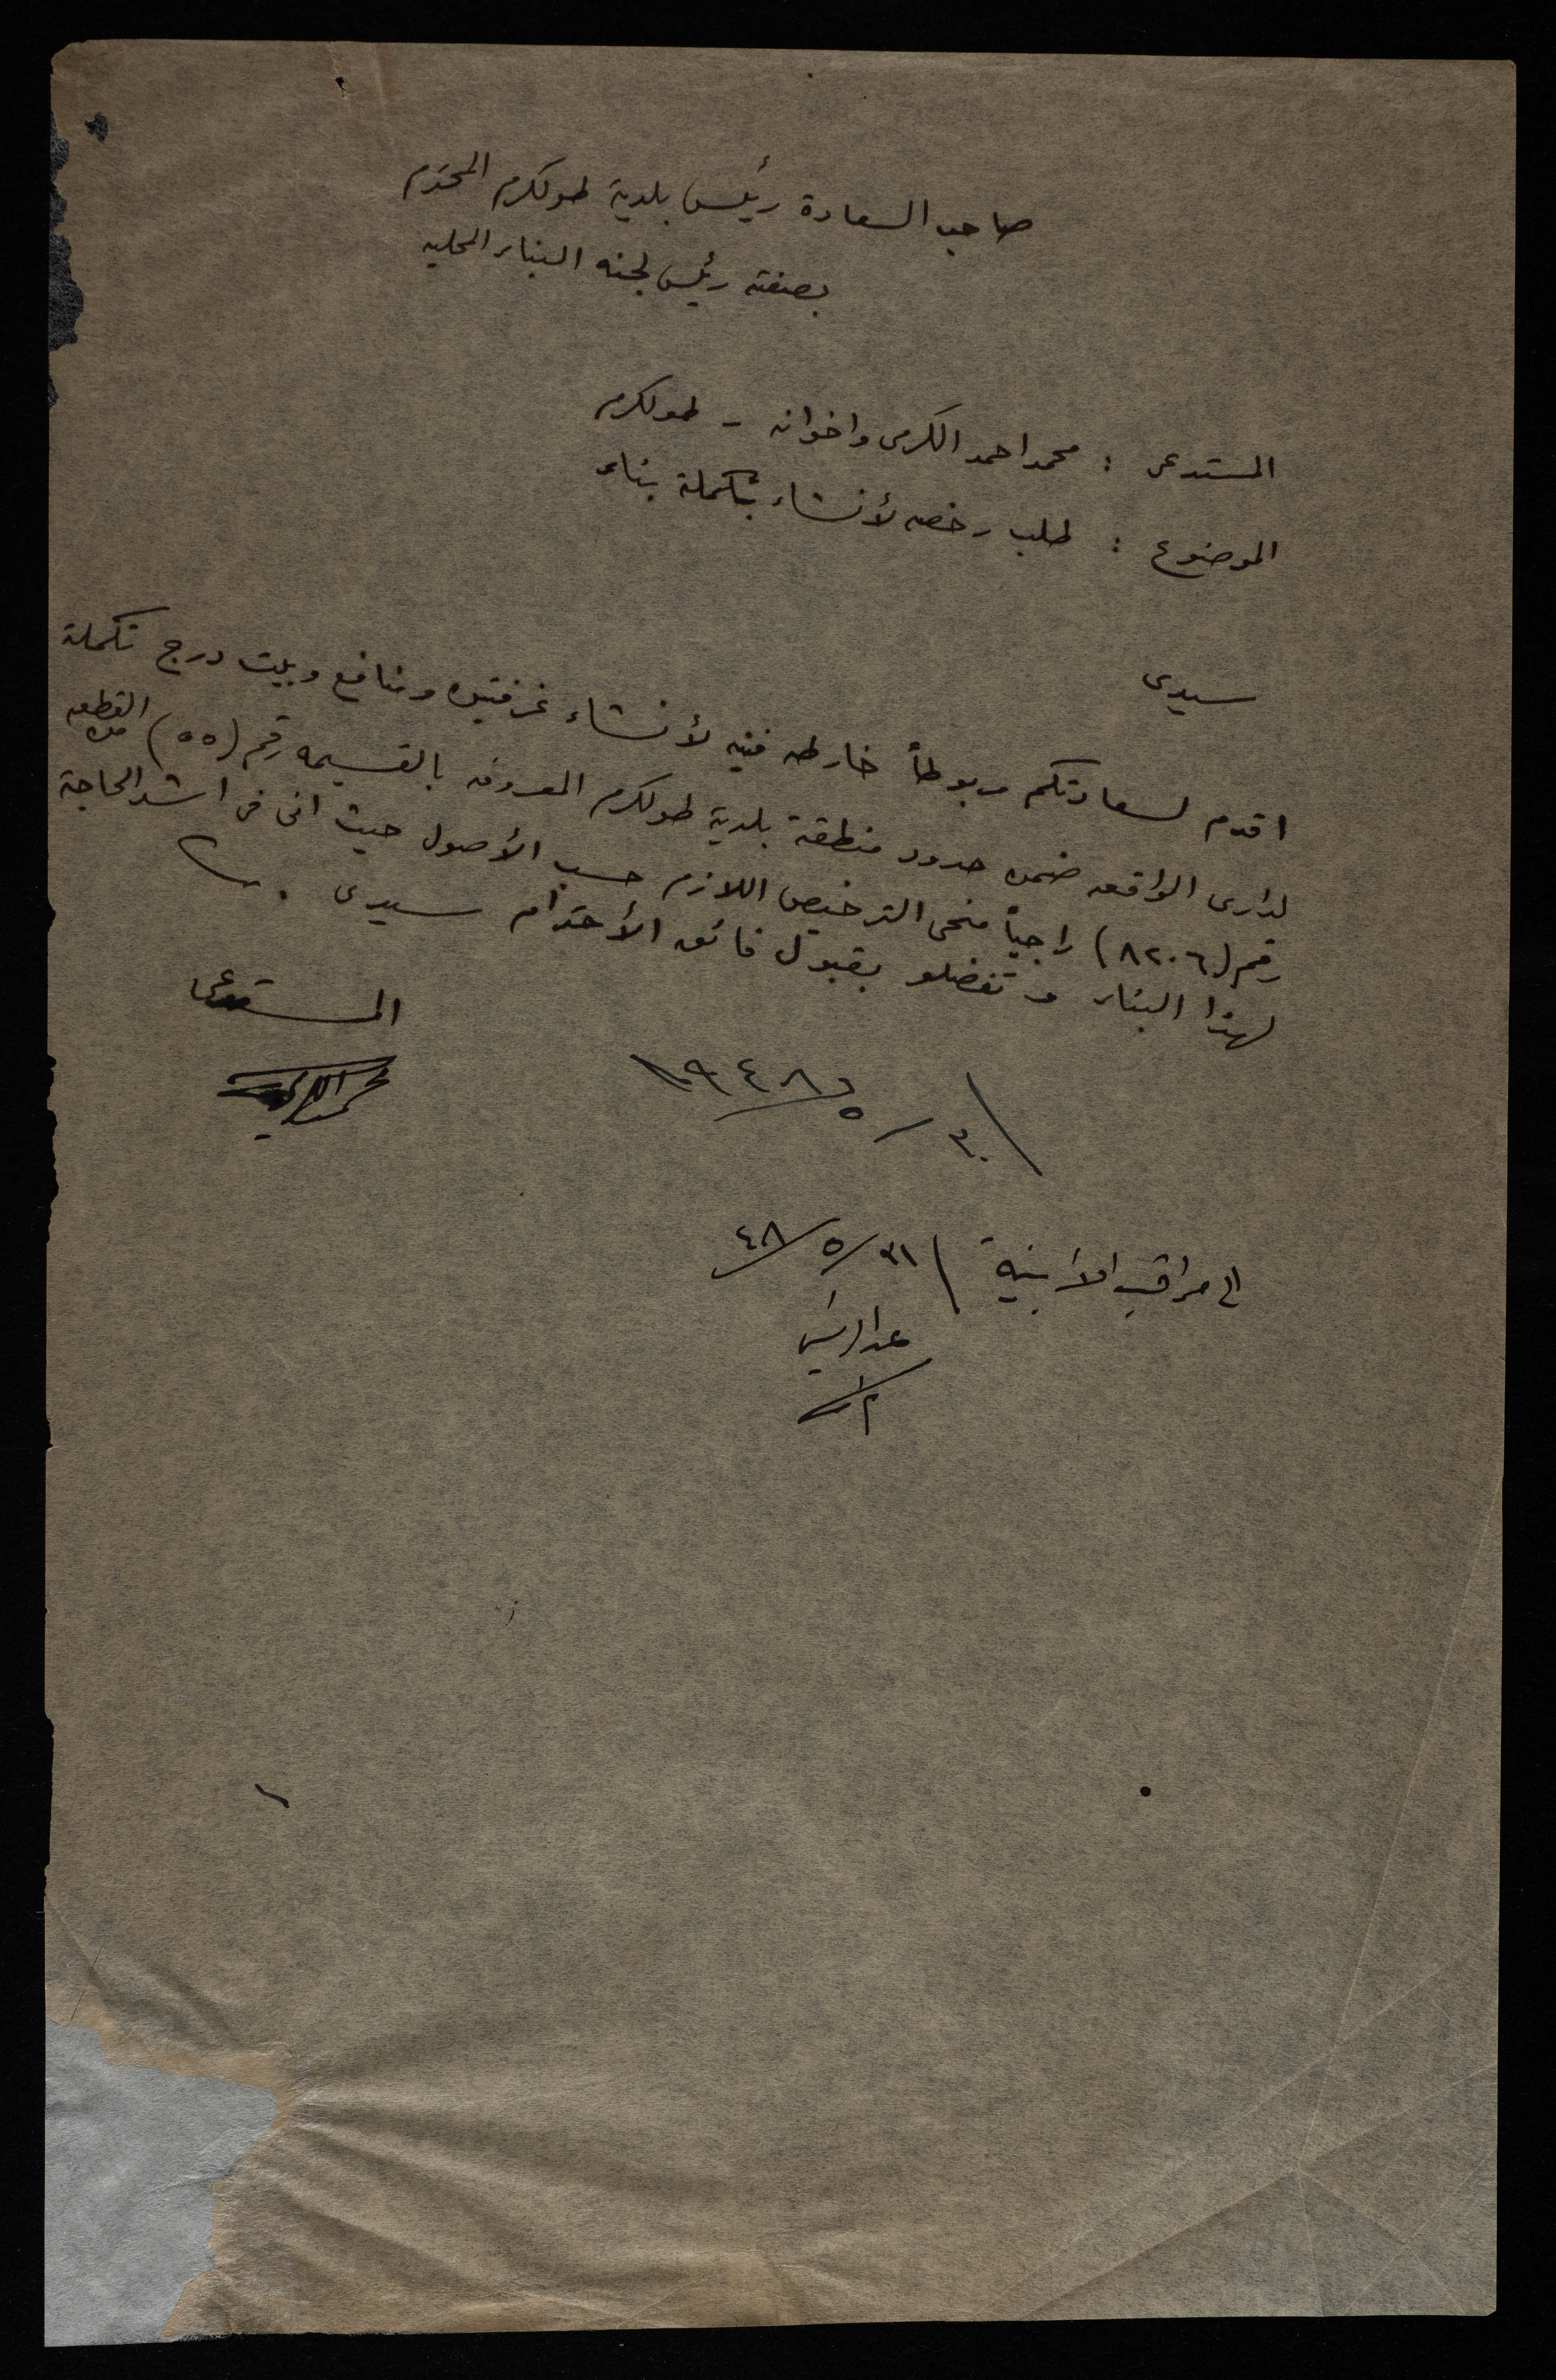 صاحب السعادة رئيس بلدية طولكرم المحترم
بصفته رئيس لجنه البناء المحليه
المستدعى : محمد احمد الكرمى واخوانه - طولكرم
الموضوع : طلب رخصه لأنشاء تكملة بناء
سيدى
اقدم لسعادتكم مربوطاً خارطه فنيه لأنشاء غرفتين ومنافع وبيت درج تكملة
لدارى الواقعه ضمن حدود منطقة بلدية طولكرم المعروفه بالقسيمه رقم (٥٥) من القطعه
رقم (٨٢٠٦) راجياً منحى الترخيص اللازم حسب الأصول حيث انى فى اشد الحاجة
لهذا البناء وتفضلو بقبول فائق الأحترام سيدى .
المستدعى
٣٠/٥/١٩٤٨
الى مراقب الابنية ٣١/٥/٤٨
عن الرئيس